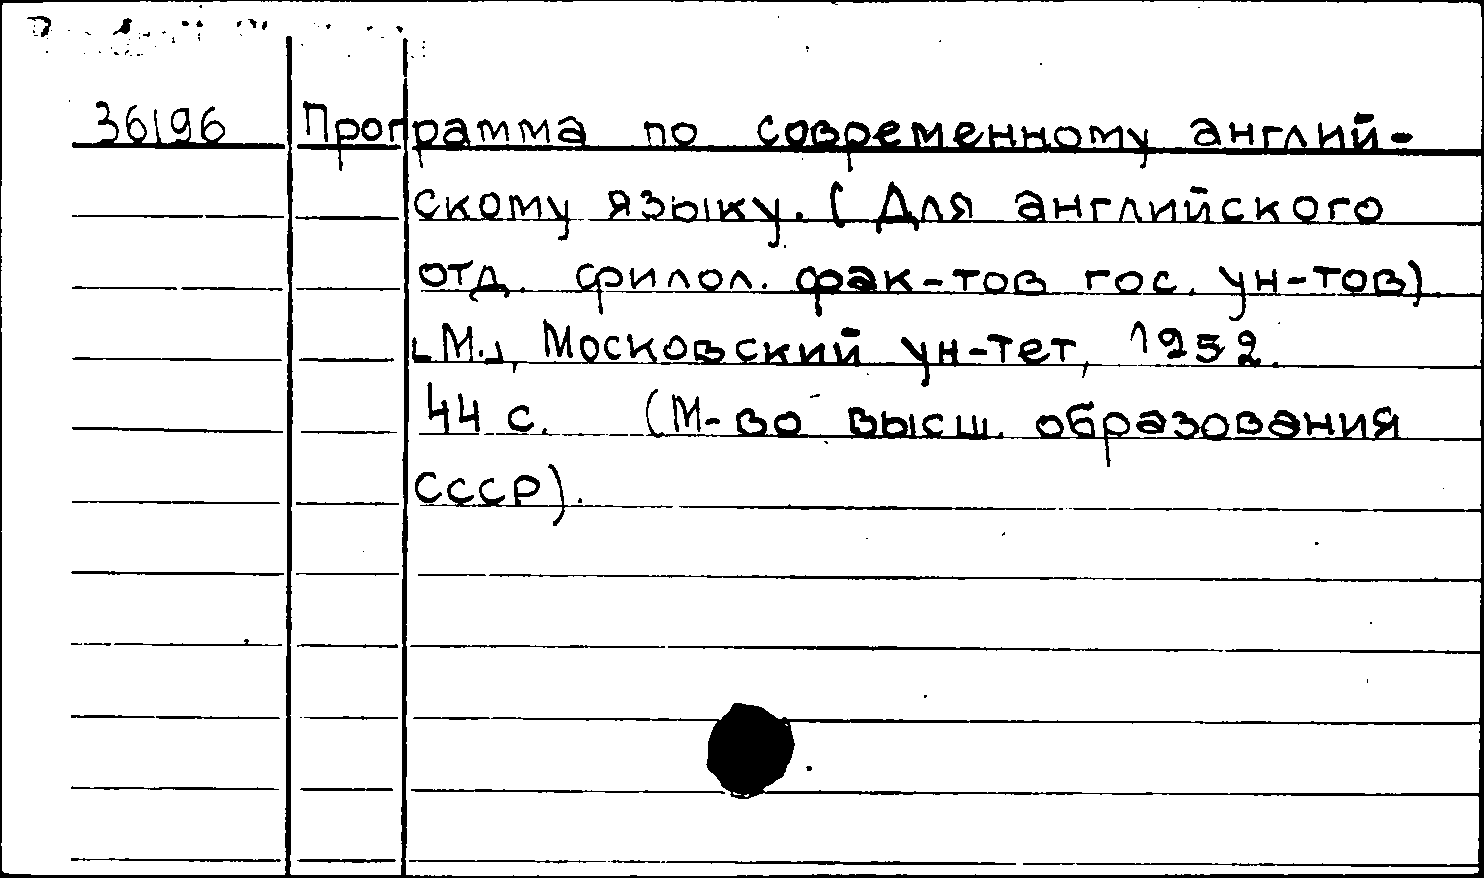 36196 Программа по современному англий-
скому языку. (Для английского
отд. филол. фак-тов гос. ун-тов)
[М.], Московский ун-тет, 1952.
44 с. (М-во высш. образования
СССР).